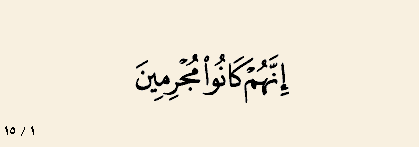 إِنَّهُمْ كَانُوا۟ مُجْرِمِينَ
١ / ١٥